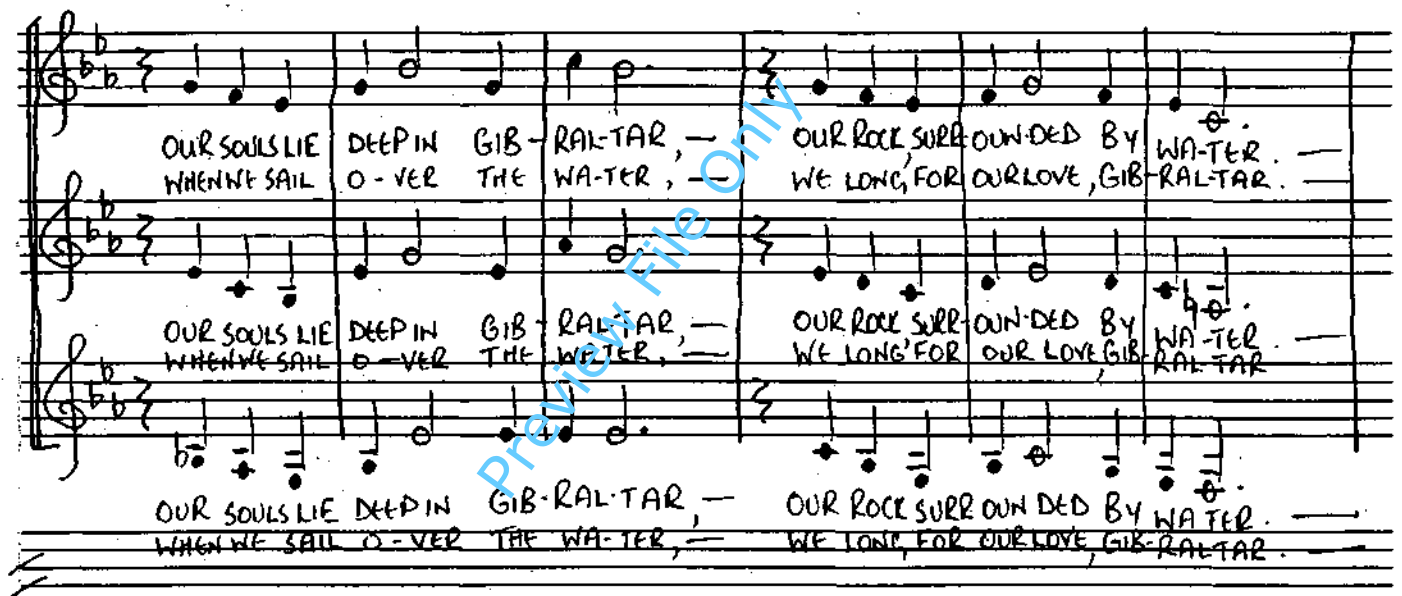 OUR SOULS LIE DEEP IN GIB-RAL-TAR, — OUR ROCK, SURR OUN-DED BY WA-TER. —
WHEN WE SAIL O-VER THE WA-TER, — WE LONG, FOR OUR LOVE, GIB-RAL-TAR. —
OUR SOULS LIE DEEP IN GIB-RAL-TAR, — OUR ROCK, SURR-OUN-DED BY WA-TER. —
WHEN WE SAIL O-VER THE WATER, — WE LONG, FOR OUR LOVE, GIB-RAL-TAR
OUR SOULS LIE DEEP IN GIB-RAL-TAR, — OUR ROCK SURR OUN DED BY WA TER. —
WHEN WE SAIL O-VER THE WA-TER, — WE LONG, FOR OUR LOVE, GIB-RALTAR. —
Preview File Only